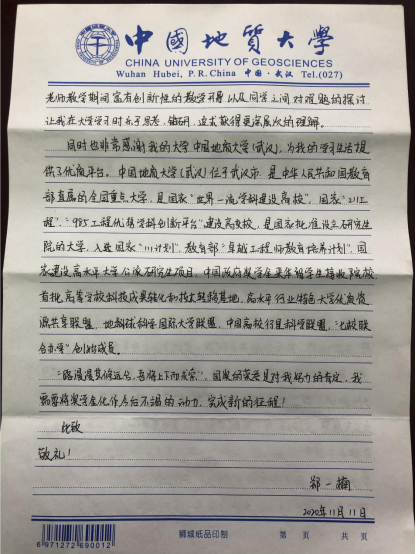 中國地質大學
CHINA UNIVERSITY OF GEOSCIENCES
Wuhan Hubei, P.R. China 中國·武汉 Tel.(027)
老师教学期间富有创新性的教学引导以及同学之间对难题的探讨
让我在大学学习时乐于思考、钻研，追求获得更高层次的理解。
同时也非常感谢我的大学中国地质大学(武汉)，为我的学习生活提
供了优质平台。中国地质大学(武汉)位于武汉市，是中华人民共和国教育
部直属的全国重点大学，是国家“世界一流学科建设高校”，国家“211工
程”、“985工程优势学科创新平台”建设高校，是国家批准设立研究生
院的大学，入选国家“111计划”、教育部“卓越工程师教育培养计划”、国
家建设高水平大学公派研究生项目、中国政府奖学金来华留学生接收院校
首批高等学校科技成果转化和技术转移基地，高水平行业特色大学优质资
源共享联盟、地球科学国际大学联盟、中国高校行星科学联盟、“七校联
合办学”创始成员。
“路漫漫其修远兮，吾将上下而求索”，国奖的荣誉是对我努力的肯定，我
需要将奖学金化作今后不竭的动力，完成新的征程！
此致
敬礼！
郑一楠
2020年11月11日
6971272690012
狮城纸品印制
第 页 共 页